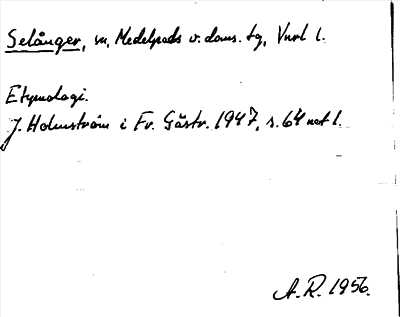 Selånger, sn, Medelpads v. doms. tg, Vnrl l.
Etymologi.
J. Holmström i Fr. Gästr. 1947, s. 64 not 1.
A. R. 1956.